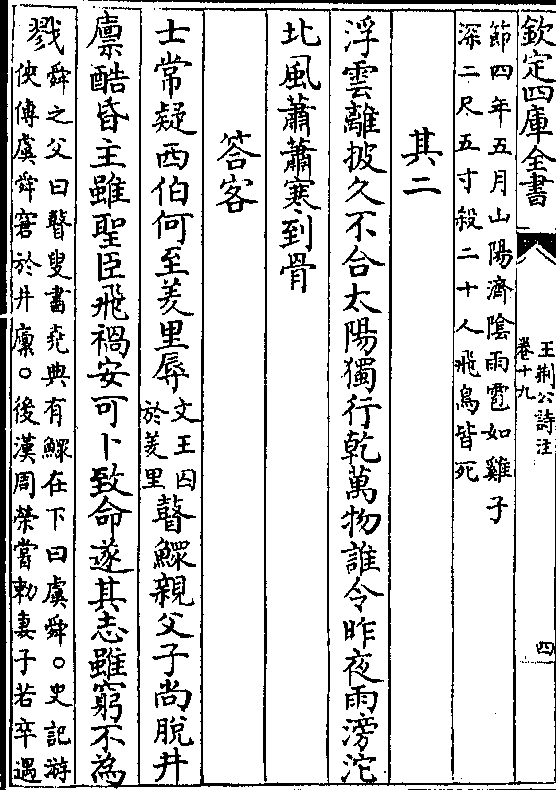 欽定四庫全書
王荆公詩注
卷十九
四
節四年五月山陽濟隂雨雹如雞子
深二尺五寸殺二十人飛鳥皆死
其二
浮雲離披久不合太陽獨行乾萬物誰令昨夜雨滂沱
北風蕭蕭寒到骨
答客
士常疑西伯何至羑里辱文王囚
於羑里瞽鰥親父子尚脱井
廪酷昏主雖聖臣飛禍安可卜致命遂其志雖窮不為
戮舜之父曰瞽叟書堯典有鰥在下曰虞舜○史記游
俠傳虞舜窘於井廪○後漢周榮嘗勅妻子若卒遇